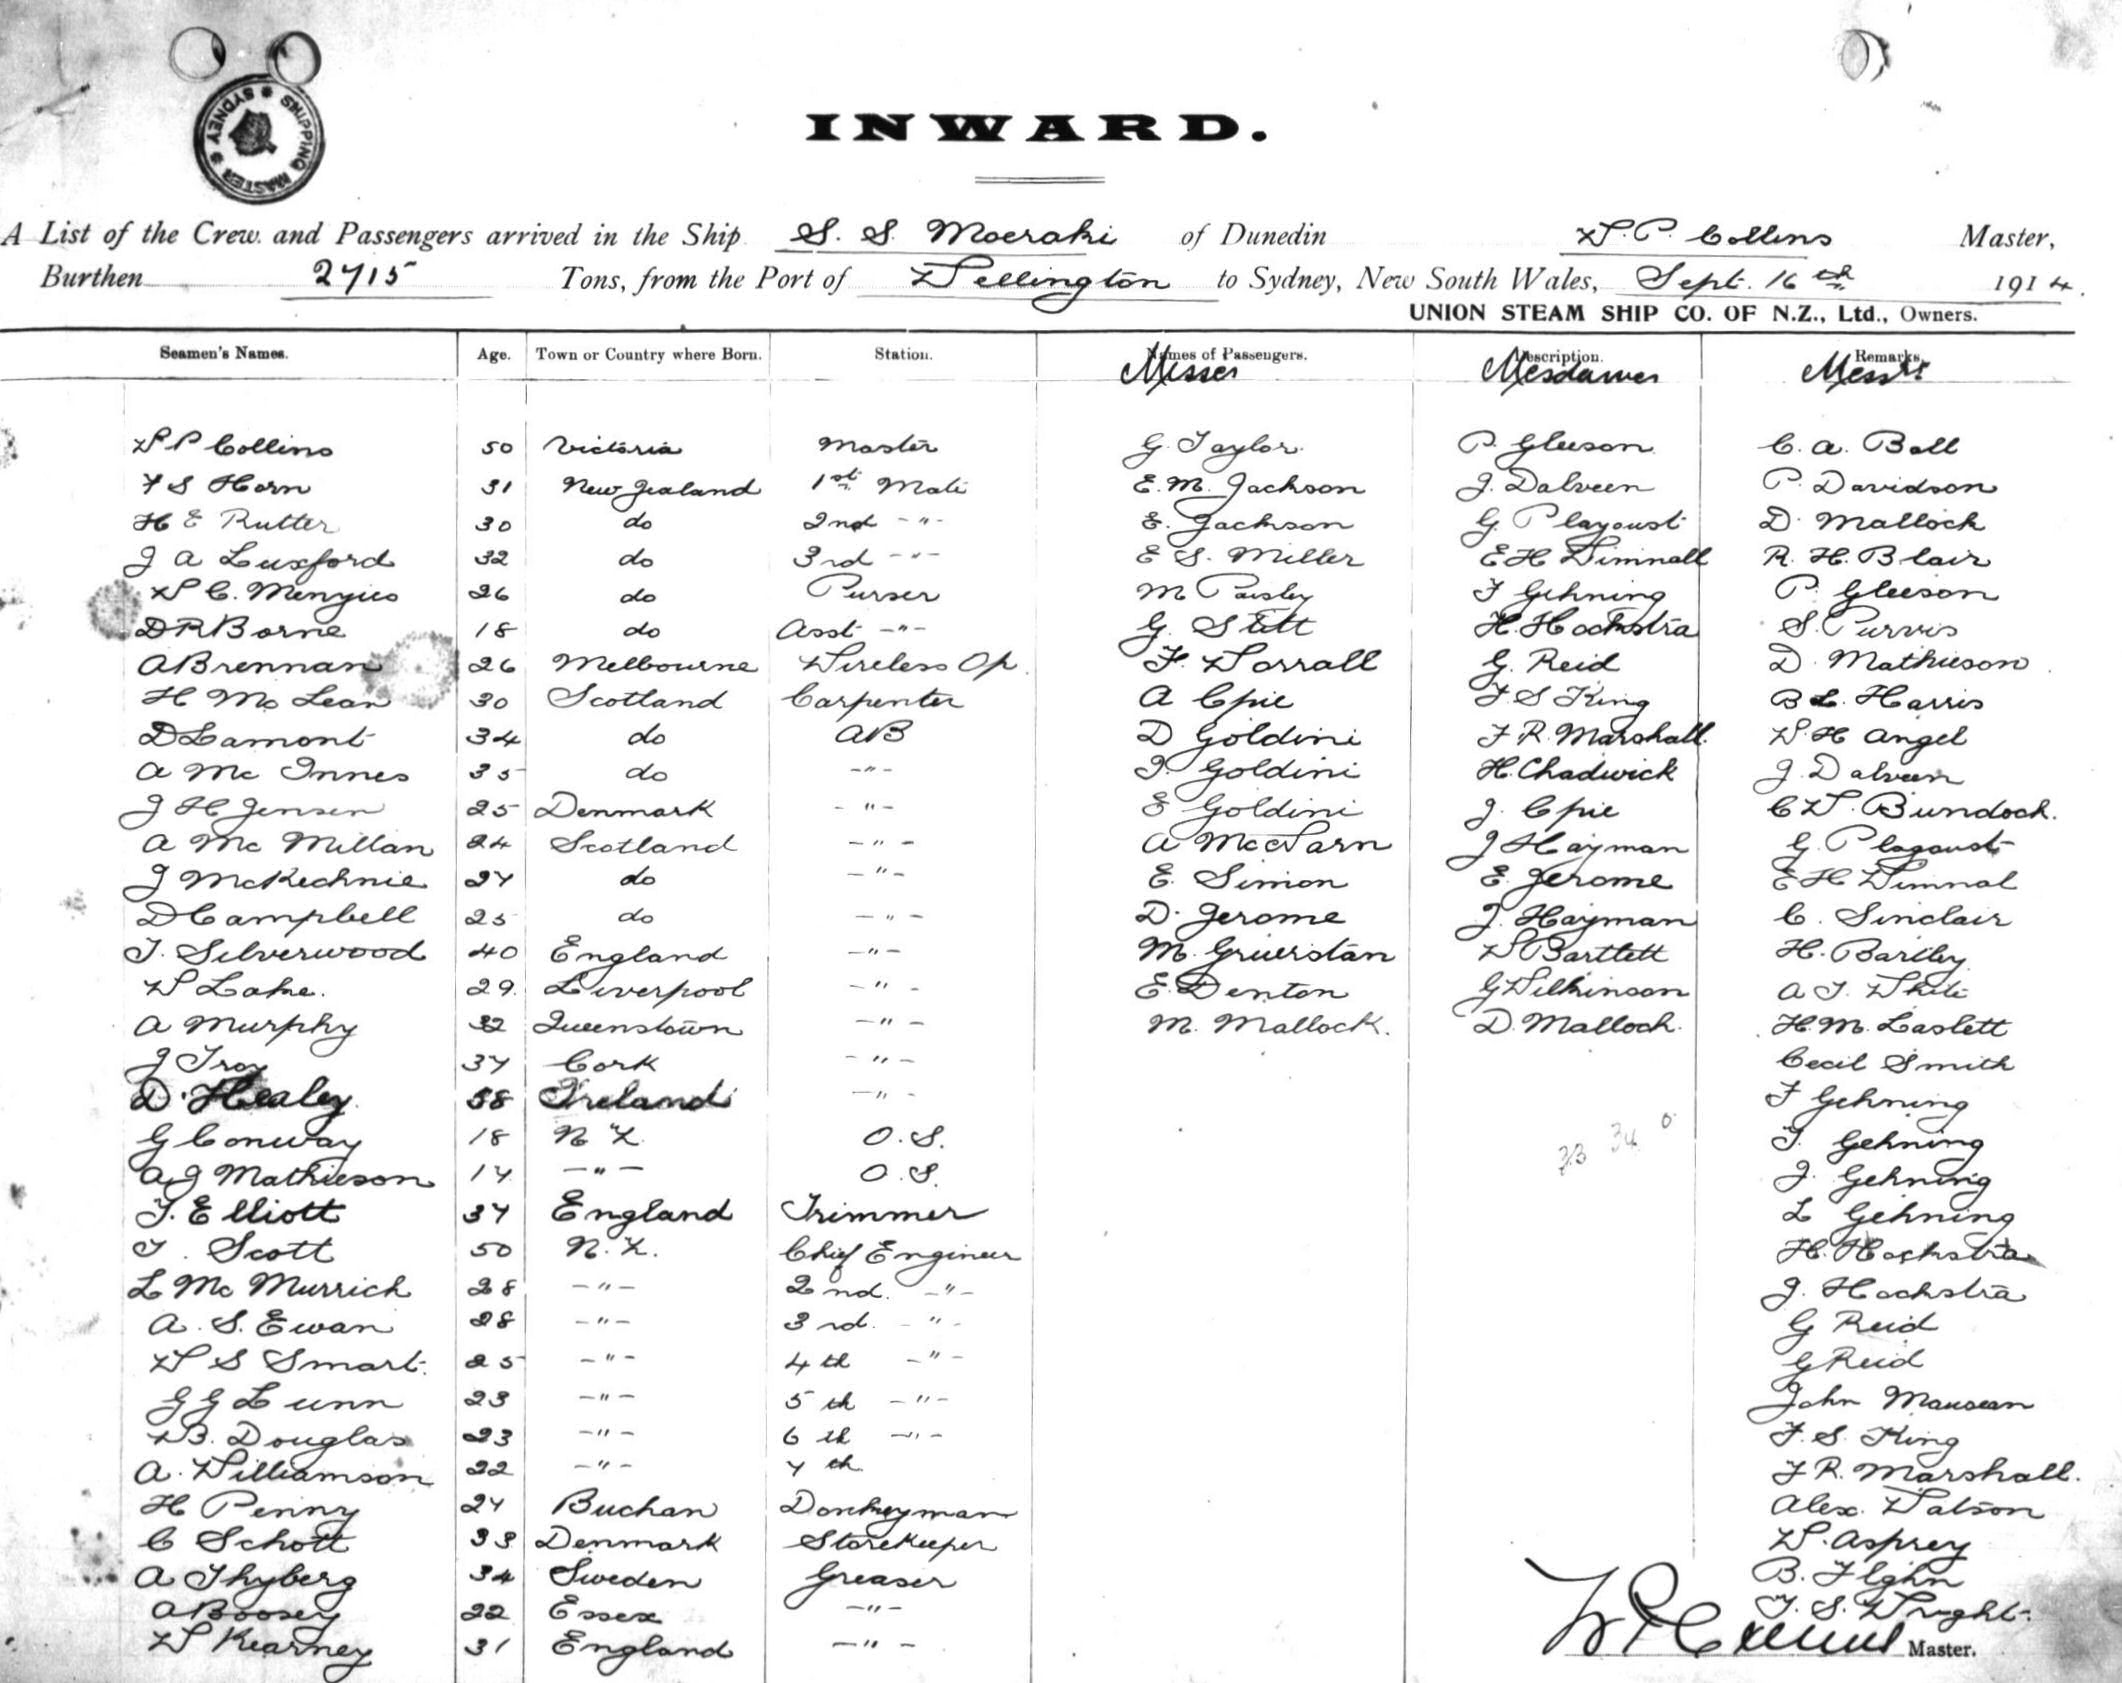 SHIPPING MASTER * SYDNEY *
INWARD.
A List of the Crew and Passengers arrived in the Ship S. S. Moeraki of Dunedin W. P. Collins Master,
Burthen 2715 Tons, from the Port of Wellington to Sydney, New South Wales, Sept. 16th 1914.
UNION STEAM SHIP CO. OF N.Z., Ltd., Owners.
Seamen's Names. Age. Town or Country where Born. Station. Names of Passengers. Description. Remarks.
Misses Mesdames Messrs
W P Collins 50 Victoria Master G Taylor P. Gleeson C. A. Ball
F S Horn 31 New Zealand 1st Mate E. M. Jackson J. Dalveen P. Davidson
H E Rutter 30 do 2nd -"- E. Jackson G Playoust D. Mallock
J A Luxford 32 do 3rd -"- E S. Miller E H Wimnall R. H. Blair
W C. Menzies 26 do Purser M Paisley F Gehning P. Gleeson
D R Borne 18 do Asst -"- G. Stett H. Hockstra S. Purvis
A Brennan 26 Melbourne Wireless Op. F. Worrall G. Reid D. Mathieson
H Mc Lean 30 Scotland Carpenter A Opie F. S King B L. Harris
D Lamont 34 do AB D Goldini F R. Marshall. W. H Angel
A Mc Innes 35 do -"- I. Goldini H. Chadwick J. Dalveen
J H Jensen 25 Denmark -"- E Goldini J. Opie C W. Bundock.
A Mc Millan 24 Scotland -"- A McTarn J Hayman G. Playoust
J McKechnie 27 do -"- E. Simon E. Jerome E H Wimnal
D Campbell 25 do -"- D. Jerome J. Hayman C. Sinclair
T. Silverwood 40 England -"- M. Grierstan W Bartlett H. Bartley
W Lake. 29. Liverpool -"- E. Denton G Wilkinson A T. White
A Murphy 32 Queenstown -"- M. Mallock. D. Mallock. H. M. Laslett
J Troy 37 Cork -"- Cecil Smith
D. Healey 38 Ireland -"- F Gehning
G Conway 18 N Z. O. S. T. Gehning
A J Mathieson 17 -"- O. S. J. Gehning
T. Elliott 37 England Trimmer L Gehning
T. Scott 50 N. Z. Chief Engineer H. Hockstra
L Mc Murrich 28 -"- 2nd. -"- J. Hockstra
A. S. Ewan 28 -"- 3rd. -"- G Reid
W S Smart. 25 -"- 4th -"- G Reid
G G Lunn 23 -"- 5th -"- John
W B. Douglas 23 -"- 6th -"- F. S. King
A. Williamson 22 -"- 7th F R. Marshall.
H Penny 27 Buchan Donkeyman Alex. Watson
C Schott 33 Denmark Storekeeper W. Asprey
A Thyberg 34 Sweden Greaser B.
A Boosey 22 Essex -"- T. S. Wright.
W Kearney 31 England -"- W P Collins Master.
33 34 0